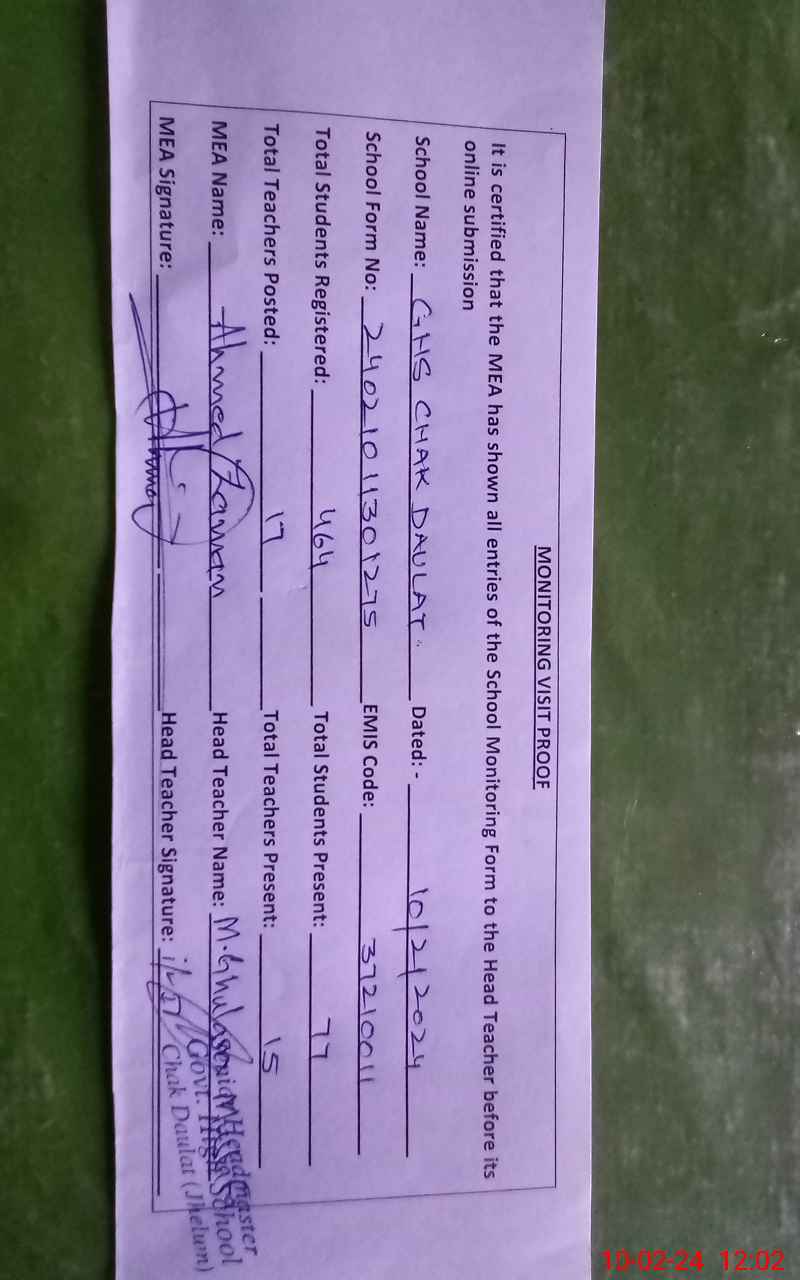 MONITORING VISIT PROOF
It is certified that the MEA has shown all entries of the School Monitoring Form to the Head Teacher before its
online submission
School Name: GHS CHAK DAULAT. Dated: - 10/2/2024
School Form No: 24021011301275 EMIS Code: 37210011
Total Students Registered: 464 Total Students Present: 77
Total Teachers Posted: 17 Total Teachers Present: 15
MEA Name: Ahmed Zaman Head Teacher Name: M. Ghulam
MEA Signature: Head Teacher Signature:
Senior Headmaster
Govt. High School
Chak Daulat (Jhelum)
10-02-24 12:02